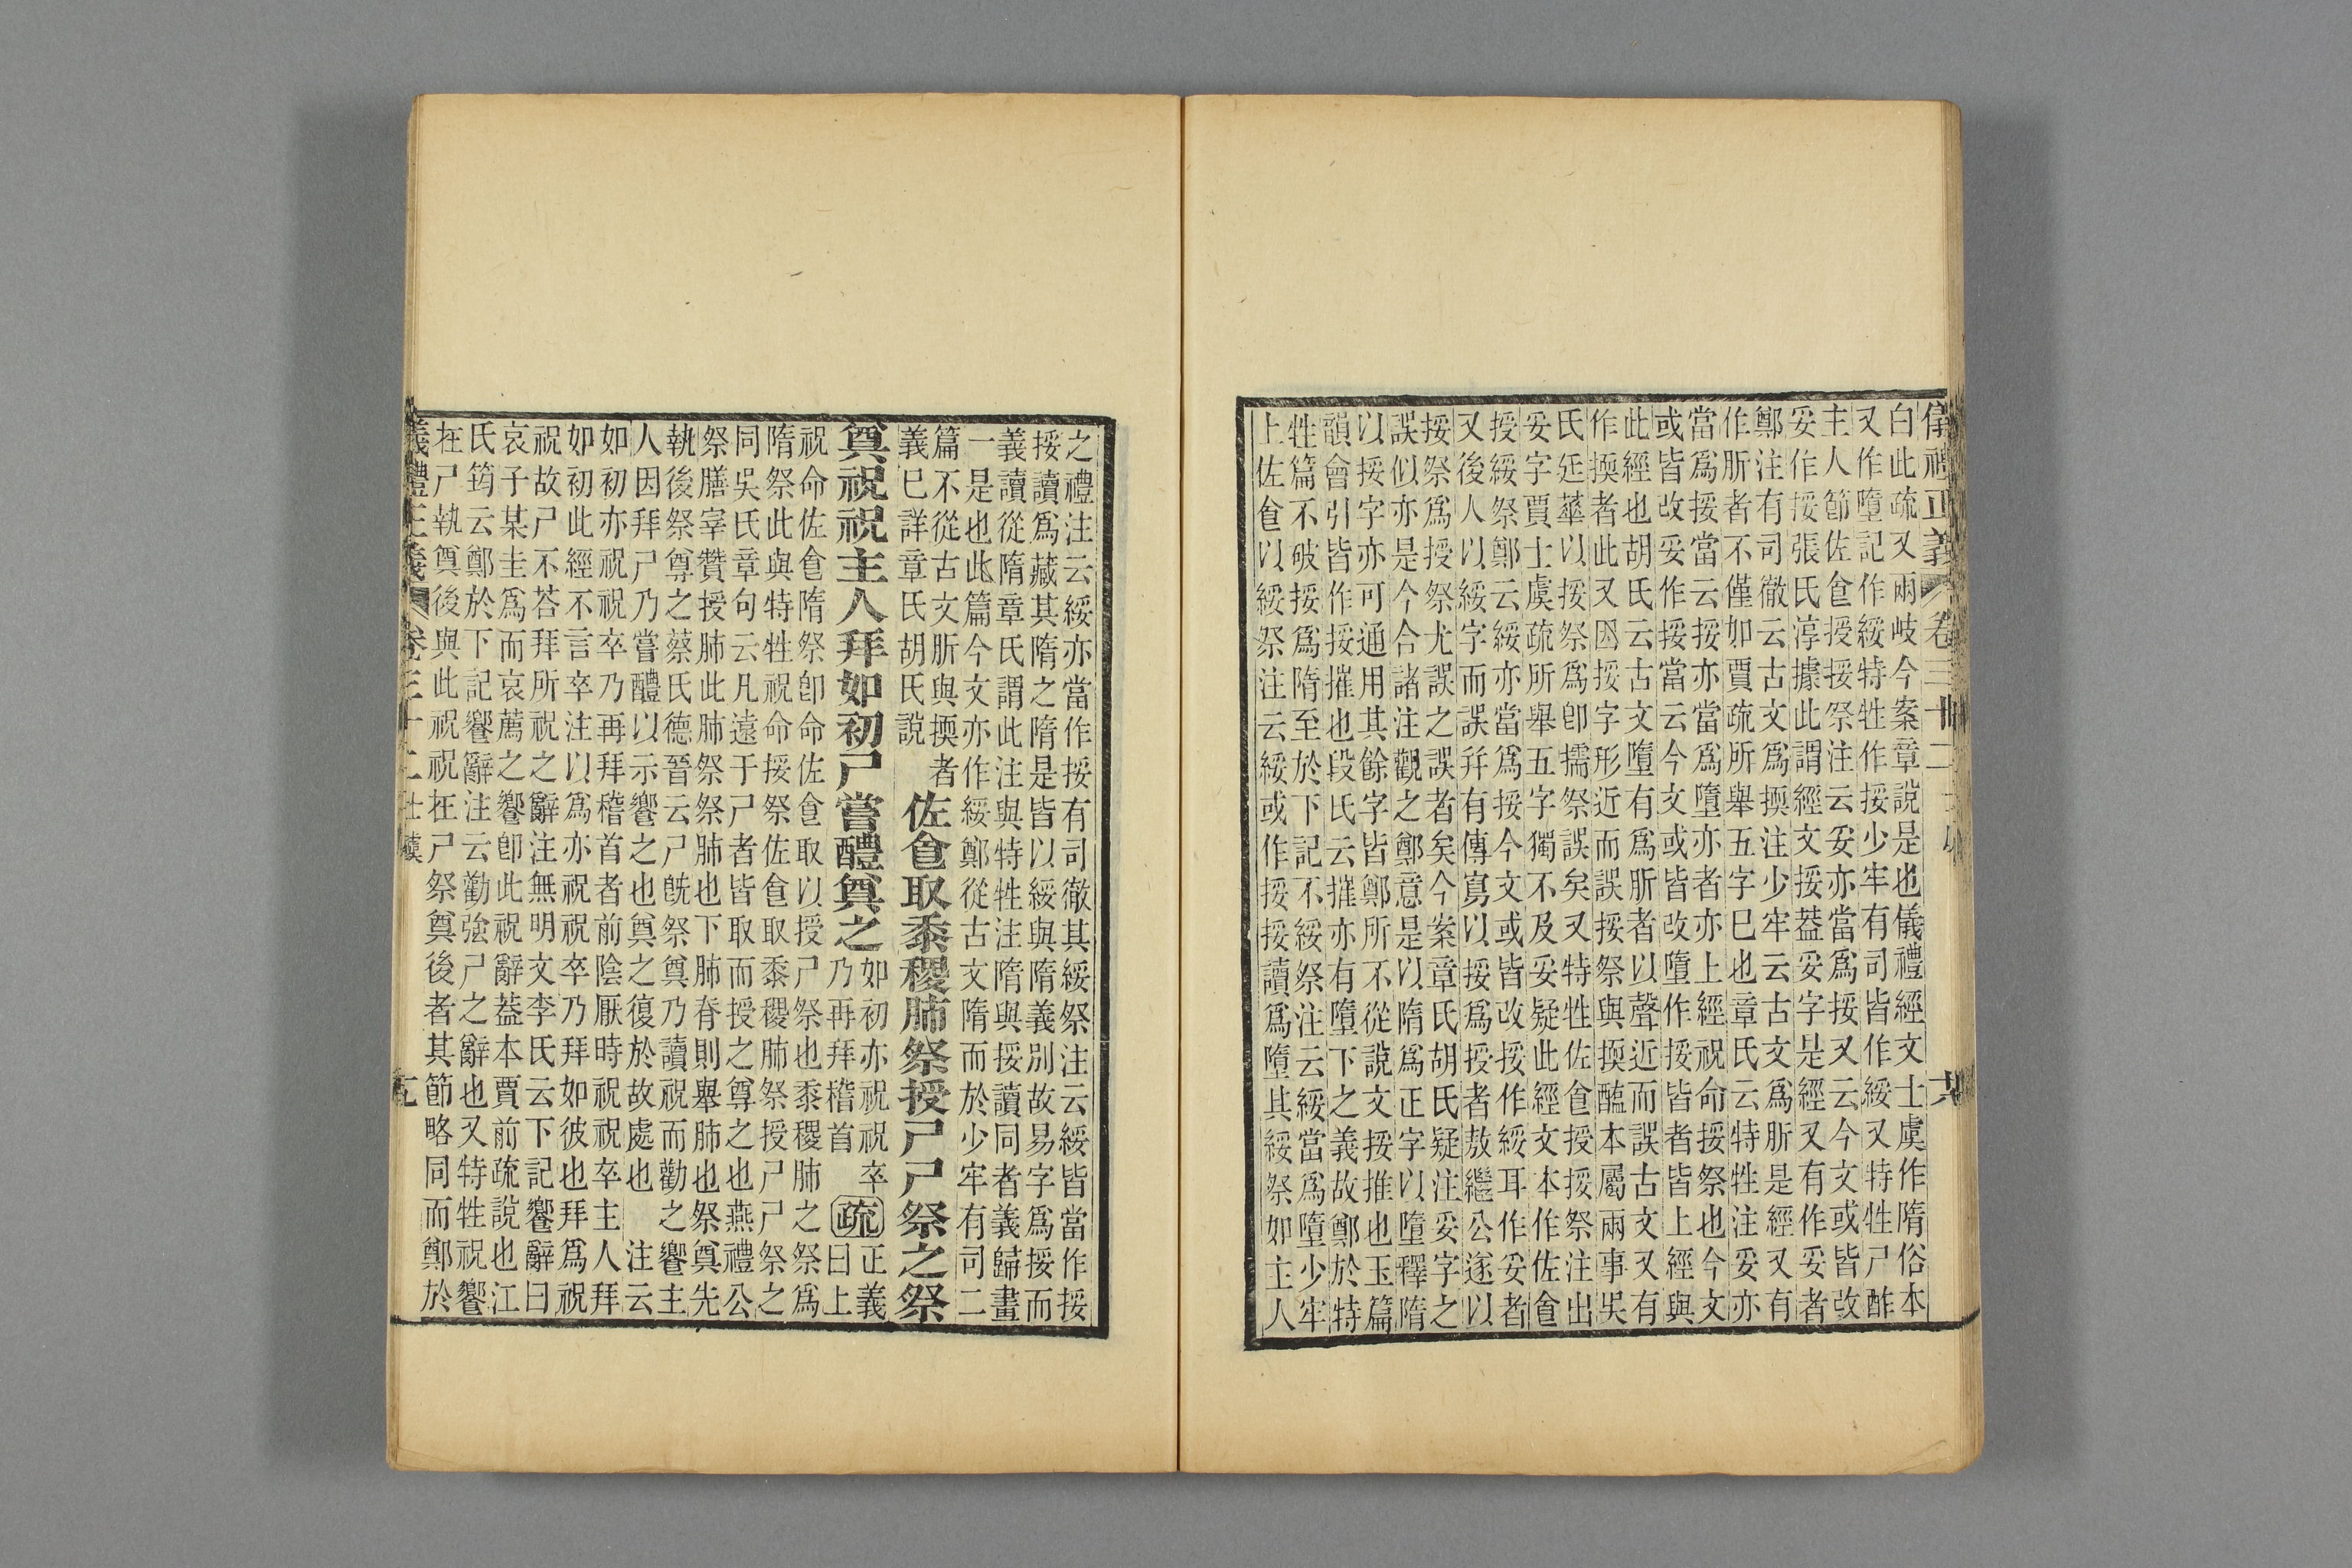 儀禮正義 卷三十二
白此疏又兩岐今案章說是也儀禮經文士虞作隋俗本
又作墮記作綏特牲作挼少牢有司皆作綏又特牲尸酢
主人節佐食授挼祭注云妥亦當爲挼又云今文或皆改
妥作挼張氏淳據此謂經文挼葢妥字是經又有作妥者
鄭注有司徹云古文爲擩注少牢云古文爲肵是經又有
作肵者不僅如賈疏所舉五字巳也章氏云特牲注妥亦
當爲挼當云挼亦當爲墮亦者亦上經祝命挼祭也今文
或皆改妥作挼當云今文或皆改墮作挼皆者皆上經與
此經也胡氏云古文墮有爲肵者以聲近而誤古文又有
作擩者此又因挼字形近而誤挼祭與擩醢本屬兩事吳
氏廷華以挼祭爲卽擩祭誤矣又特牲佐食授挼祭注出
妥字賈士虞疏所舉五字獨不及妥疑此經文本作佐食
授綏祭鄭云綏亦當爲挼今文或皆改挼作綏耳作妥者
又後人以綏字而誤幷有傳寫以挼爲授者敖繼公遂以
挼祭爲授祭尤誤之誤者矣今案章氏胡氏疑注妥字之
誤似亦是今合諸注觀之鄭意是以隋爲正字以墮釋隋
以挼字亦可通用其餘字皆鄭所不從說文挼推也玉篇
韻會引皆作挼摧也段氏云摧亦有墮下之義故鄭於特
牲篇不破挼爲隋至於下記不綏祭注云綏當爲墮少牢
上佐食以綏祭注云綏或作挼挼讀爲墮其綏祭如主人
之禮注云綏亦當作挼有司徹其綏祭注云綏皆當作挼
挼讀爲藏其隋之隋是皆以綏與隋義別故易字爲挼而
義讀從隋章氏謂此注與特牲注隋與挼讀同者義歸畫
一是也此篇今文亦作綏鄭從古文隋而於少牢有司二
篇不從古文肵與擩者
義巳詳章氏胡氏說
佐食取黍稷肺祭授尸尸祭之祭
奠祝祝主人拜如初尸嘗醴奠之
如初亦祝祝卒
乃再拜稽首
疏
正義
曰上
祝命佐食隋祭卽命佐食取以授尸祭也黍稷肺之祭爲
隋祭此與特牲祝命挼祭佐食取黍稷肺祭授尸尸祭之
同吳氏章句云凡遠于尸者皆取而授之尊之也燕禮公
祭膳宰贊授肺此肺祭祭肺也下肺脊則舉肺也祭奠先
執後祭尊之蔡氏德晉云尸旣祭奠乃讀祝而勸之饗主
人因拜尸乃嘗醴以示饗之也奠之復於故處也 注云
如初亦祝祝卒乃再拜稽首者前陰厭時祝祝卒主人拜
如初此經不言卒注以爲亦祝祝卒乃拜如彼也拜爲祝
祝故尸不荅拜所祝之辭注無明文李氏云下記饗辭曰
哀子某圭爲而哀薦之饗卽此祝辭葢本賈前疏說也江
氏筠云鄭於下記饗辭注云勸強尸之辭也又特牲祝饗
在尸執奠後與此祝祝在尸祭奠後者其節略同而鄭於